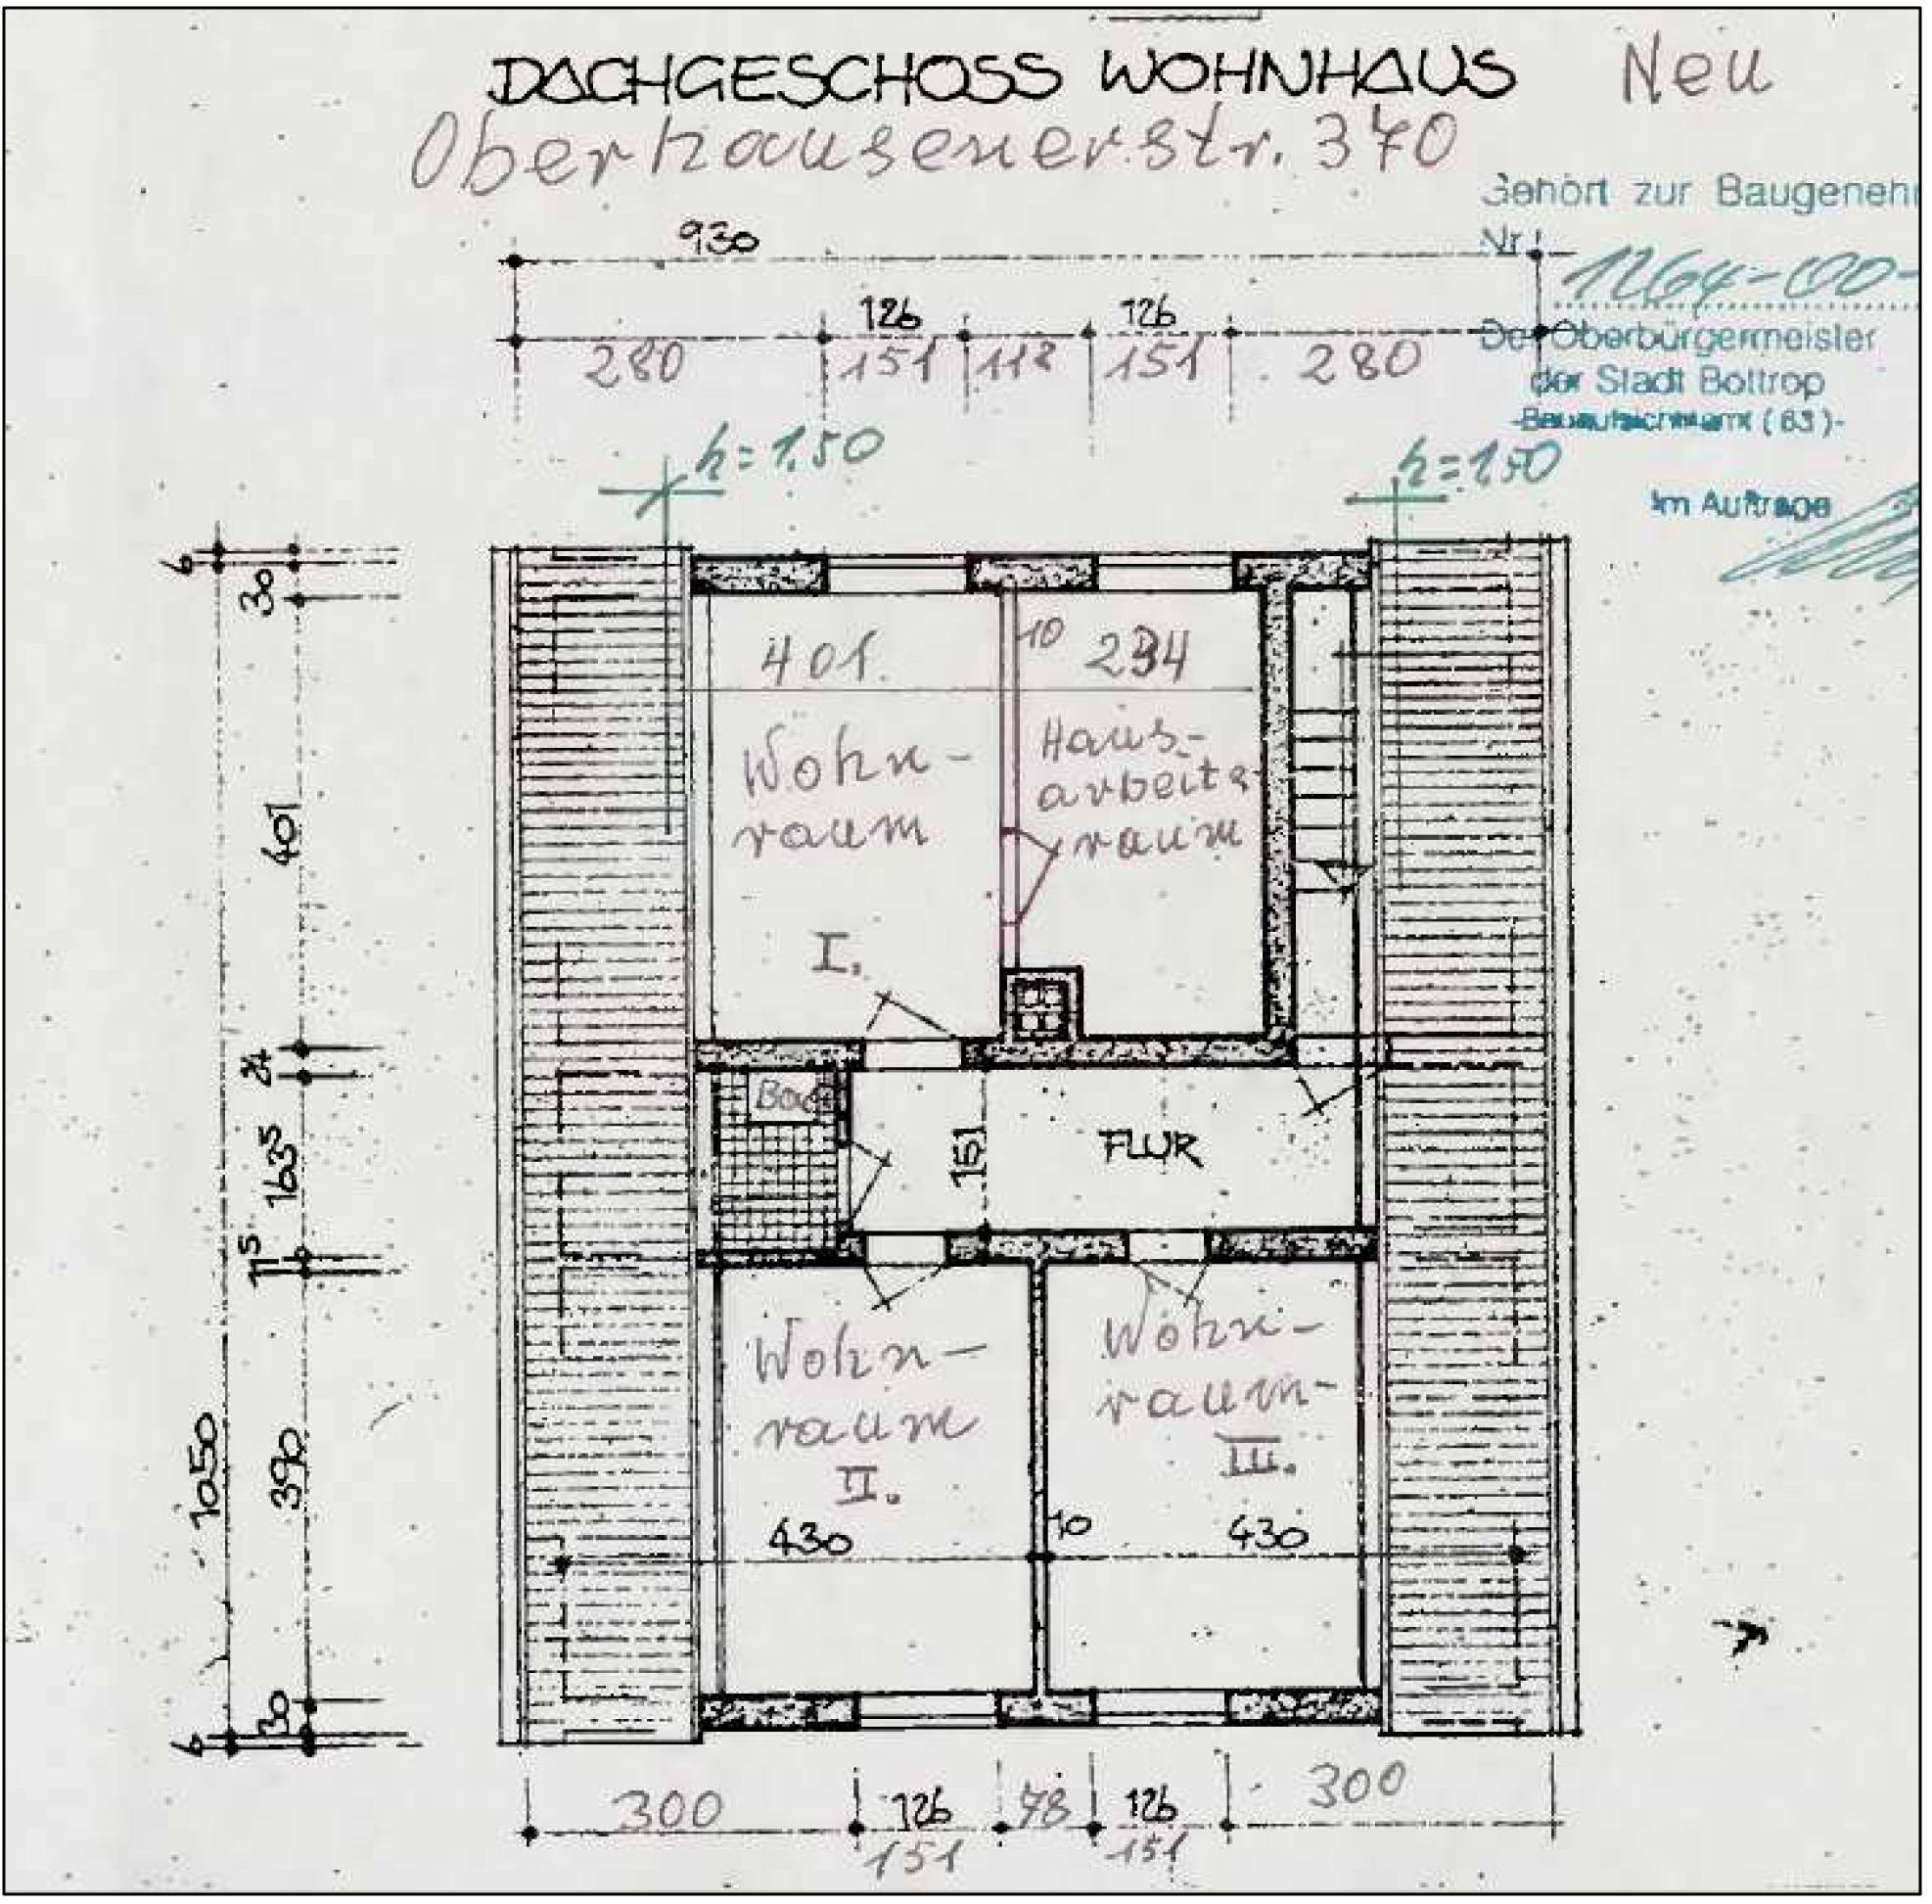 DACHGESCHOSS WOHNHAUS Neu
Oberhausenerstr. 370
Gehört zur Baugeneh
Nr.
1264-00-
Der Oberbürgermeister
der Stadt Bottrop
-Bauaufsichtsamt (63)-
Im Auftrage
930
126 126
280 151 112 151 280
h=1.50 h=1.50
6
30
401
24
163⁵
11⁵
390
1050
30
6
401. 10 234
Wohn-
raum
I.
Haus-
arbeits
raum
Bad
151
FLUR
Wohn-
raum
II.
Wohn-
raum-
III.
430 10 430
300 126 78 126 300
151 151